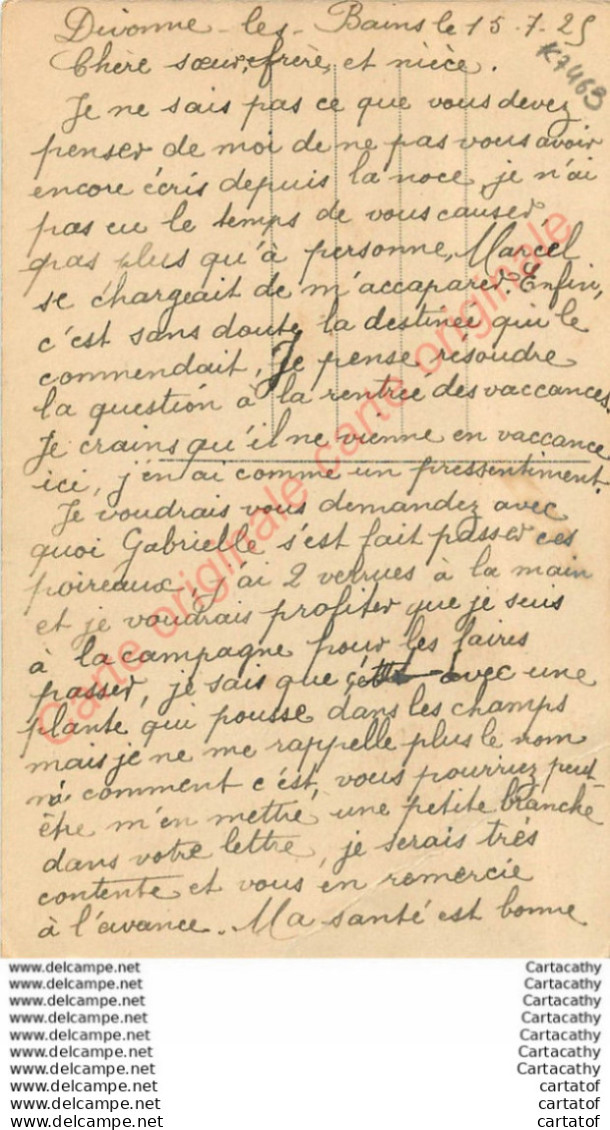 Divonne-les-Bains le 15-7-25
K7463
Chère sœur, frère, et nièce.
Je ne sais pas ce que vous devez
penser de moi de ne pas vous avoir
encore écris depuis la noce, je n'ai
pas eu le temps de vous causer,
pas plus qu'à personne, Marcel
se chargeait de m'accaparer. Enfin,
c'est sans doute la destinée qui le
commendait, Je pense résoudre
la question à la rentrée des vaccances.
Je crains qu'il ne vienne en vaccance
ici, j'en ai comme un pressentiment.
Je voudrais vous demandez avec
quoi Gabrielle s'est fait passer ces
poireaux, j'ai 2 verrues à la main
et je voudrais profiter que je suis
à la campagne pour les faires
passer, je sais que c'est avec une
plante qui pousse dans les champs
mais je ne me rappelle plus le nom
ni comment c'est, vous pourriez peut-
être m'en mettre une petite branche
dans votre lettre, je serais très
contente et vous en remercie
à l'avance. Ma santé est bonne
Carte originale carte originale
www.delcampe.net Cartacathy
www.delcampe.net Cartacathy
www.delcampe.net Cartacathy
www.delcampe.net Cartacathy
www.delcampe.net Cartacathy
www.delcampe.net Cartacathy
www.delcampe.net Cartacathy
www.delcampe.net cartatof
www.delcampe.net cartatof
www.delcampe.net cartatof